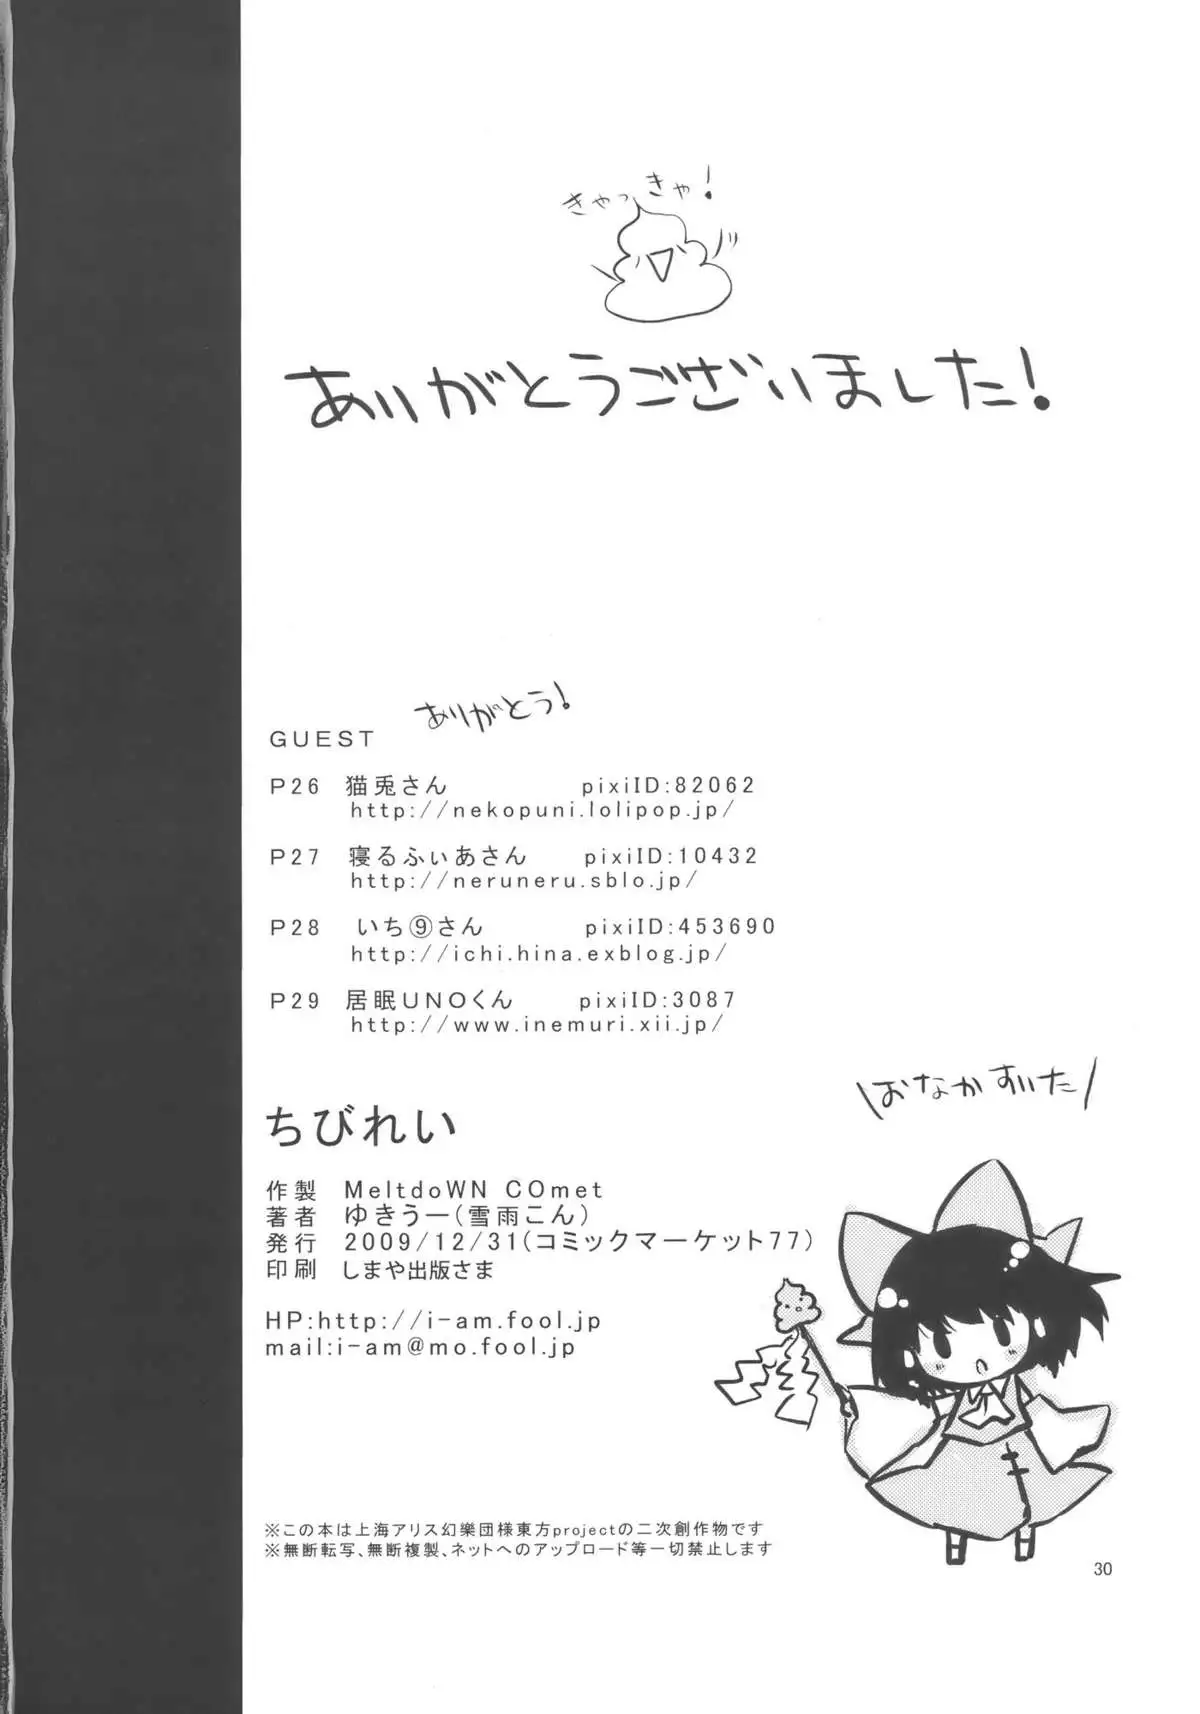 きゃっきゃ!
ありがとうございました!
ありがとう!
GUEST
P26 猫兎さん pixiID:82062
http://nekopuni.lolipop.jp/
P27 寝るふぃあさん pixiID:10432
http://neruneru.sblo.jp/
P28 いち⑨さん pixiID:453690
http://ichi.hina.exblog.jp/
P29 居眠UNOくん pixiID:3087
http://www.inemuri.xii.jp/
\おなかすいた/
ちびれい
作製 MeltdoWN COmet
著者 ゆきうー(雪雨こん)
発行 2009/12/31(コミックマーケット77)
印刷 しまや出版さま
HP:http://i-am.fool.jp
mail:i-am@mo.fool.jp
※この本は上海アリス幻樂団様東方projectの二次創作物です
※無断転写、無断複製、ネットへのアップロード等一切禁止します
30